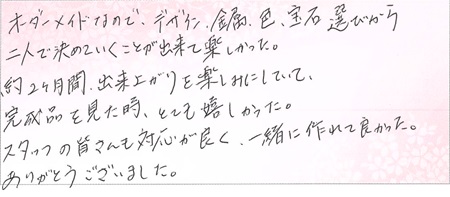 オーダーメイドなので、デザイン、金属、色、宝石選びから
二人で決めていくことが出来て楽しかった。
約2ヶ月間、出来上がりを楽しみにしていて、
完成品を見た時、とても嬉しかった。
スタッフの皆さんも対応が良く、一緒に作れて良かった。
ありがとうございました。